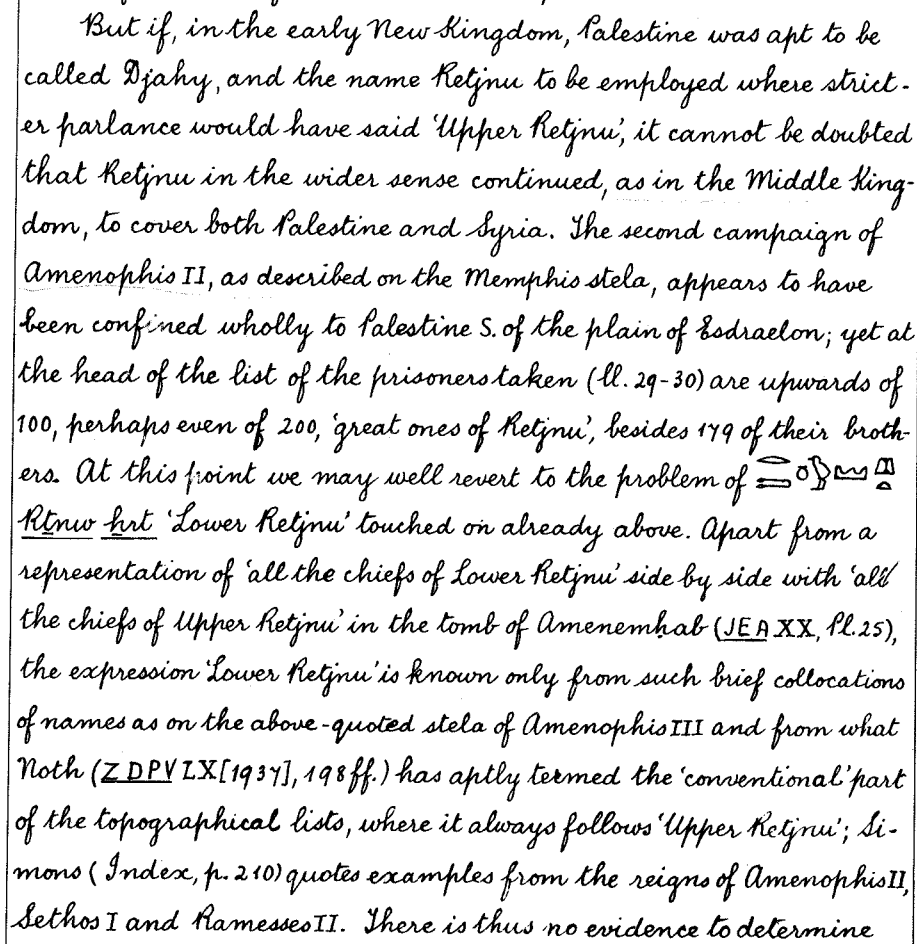 But if, in the early New Kingdom, Palestine was apt to be
called Djahy, and the name Retjnu to be employed where strict-
er parlance would have said 'Upper Retjnu', it cannot be doubted
that Retjnu in the wider sense continued, as in the Middle King-
dom, to cover both Palestine and Syria. The second campaign of
Amenophis II, as described on the Memphis stela, appears to have
been confined wholly to Palestine S. of the plain of Esdraelon; yet at
the head of the list of the prisoners taken (ll. 29-30) are upwards of
100, perhaps even of 200, 'great ones of Retjnu', besides 179 of their broth-
ers. At this point we may well revert to the problem of
Rṯnw ẖrt 'Lower Retjnu' touched on already above. Apart from a
representation of 'all the chiefs of Lower Retjnu' side by side with 'all
the chiefs of Upper Retjnu' in the tomb of Amenemḥab (JEA XX, Pl. 25),
the expression 'Lower Retjnu' is known only from such brief collocations
of names as on the above-quoted stela of Amenophis III and from what
Noth (ZDPV LX [1937], 198 ff.) has aptly termed the 'conventional' part
of the topographical lists, where it always follows 'Upper Retjnu'; Si-
mons (Index, p. 210) quotes examples from the reigns of Amenophis II,
Sethos I and Ramesses II. There is thus no evidence to determine